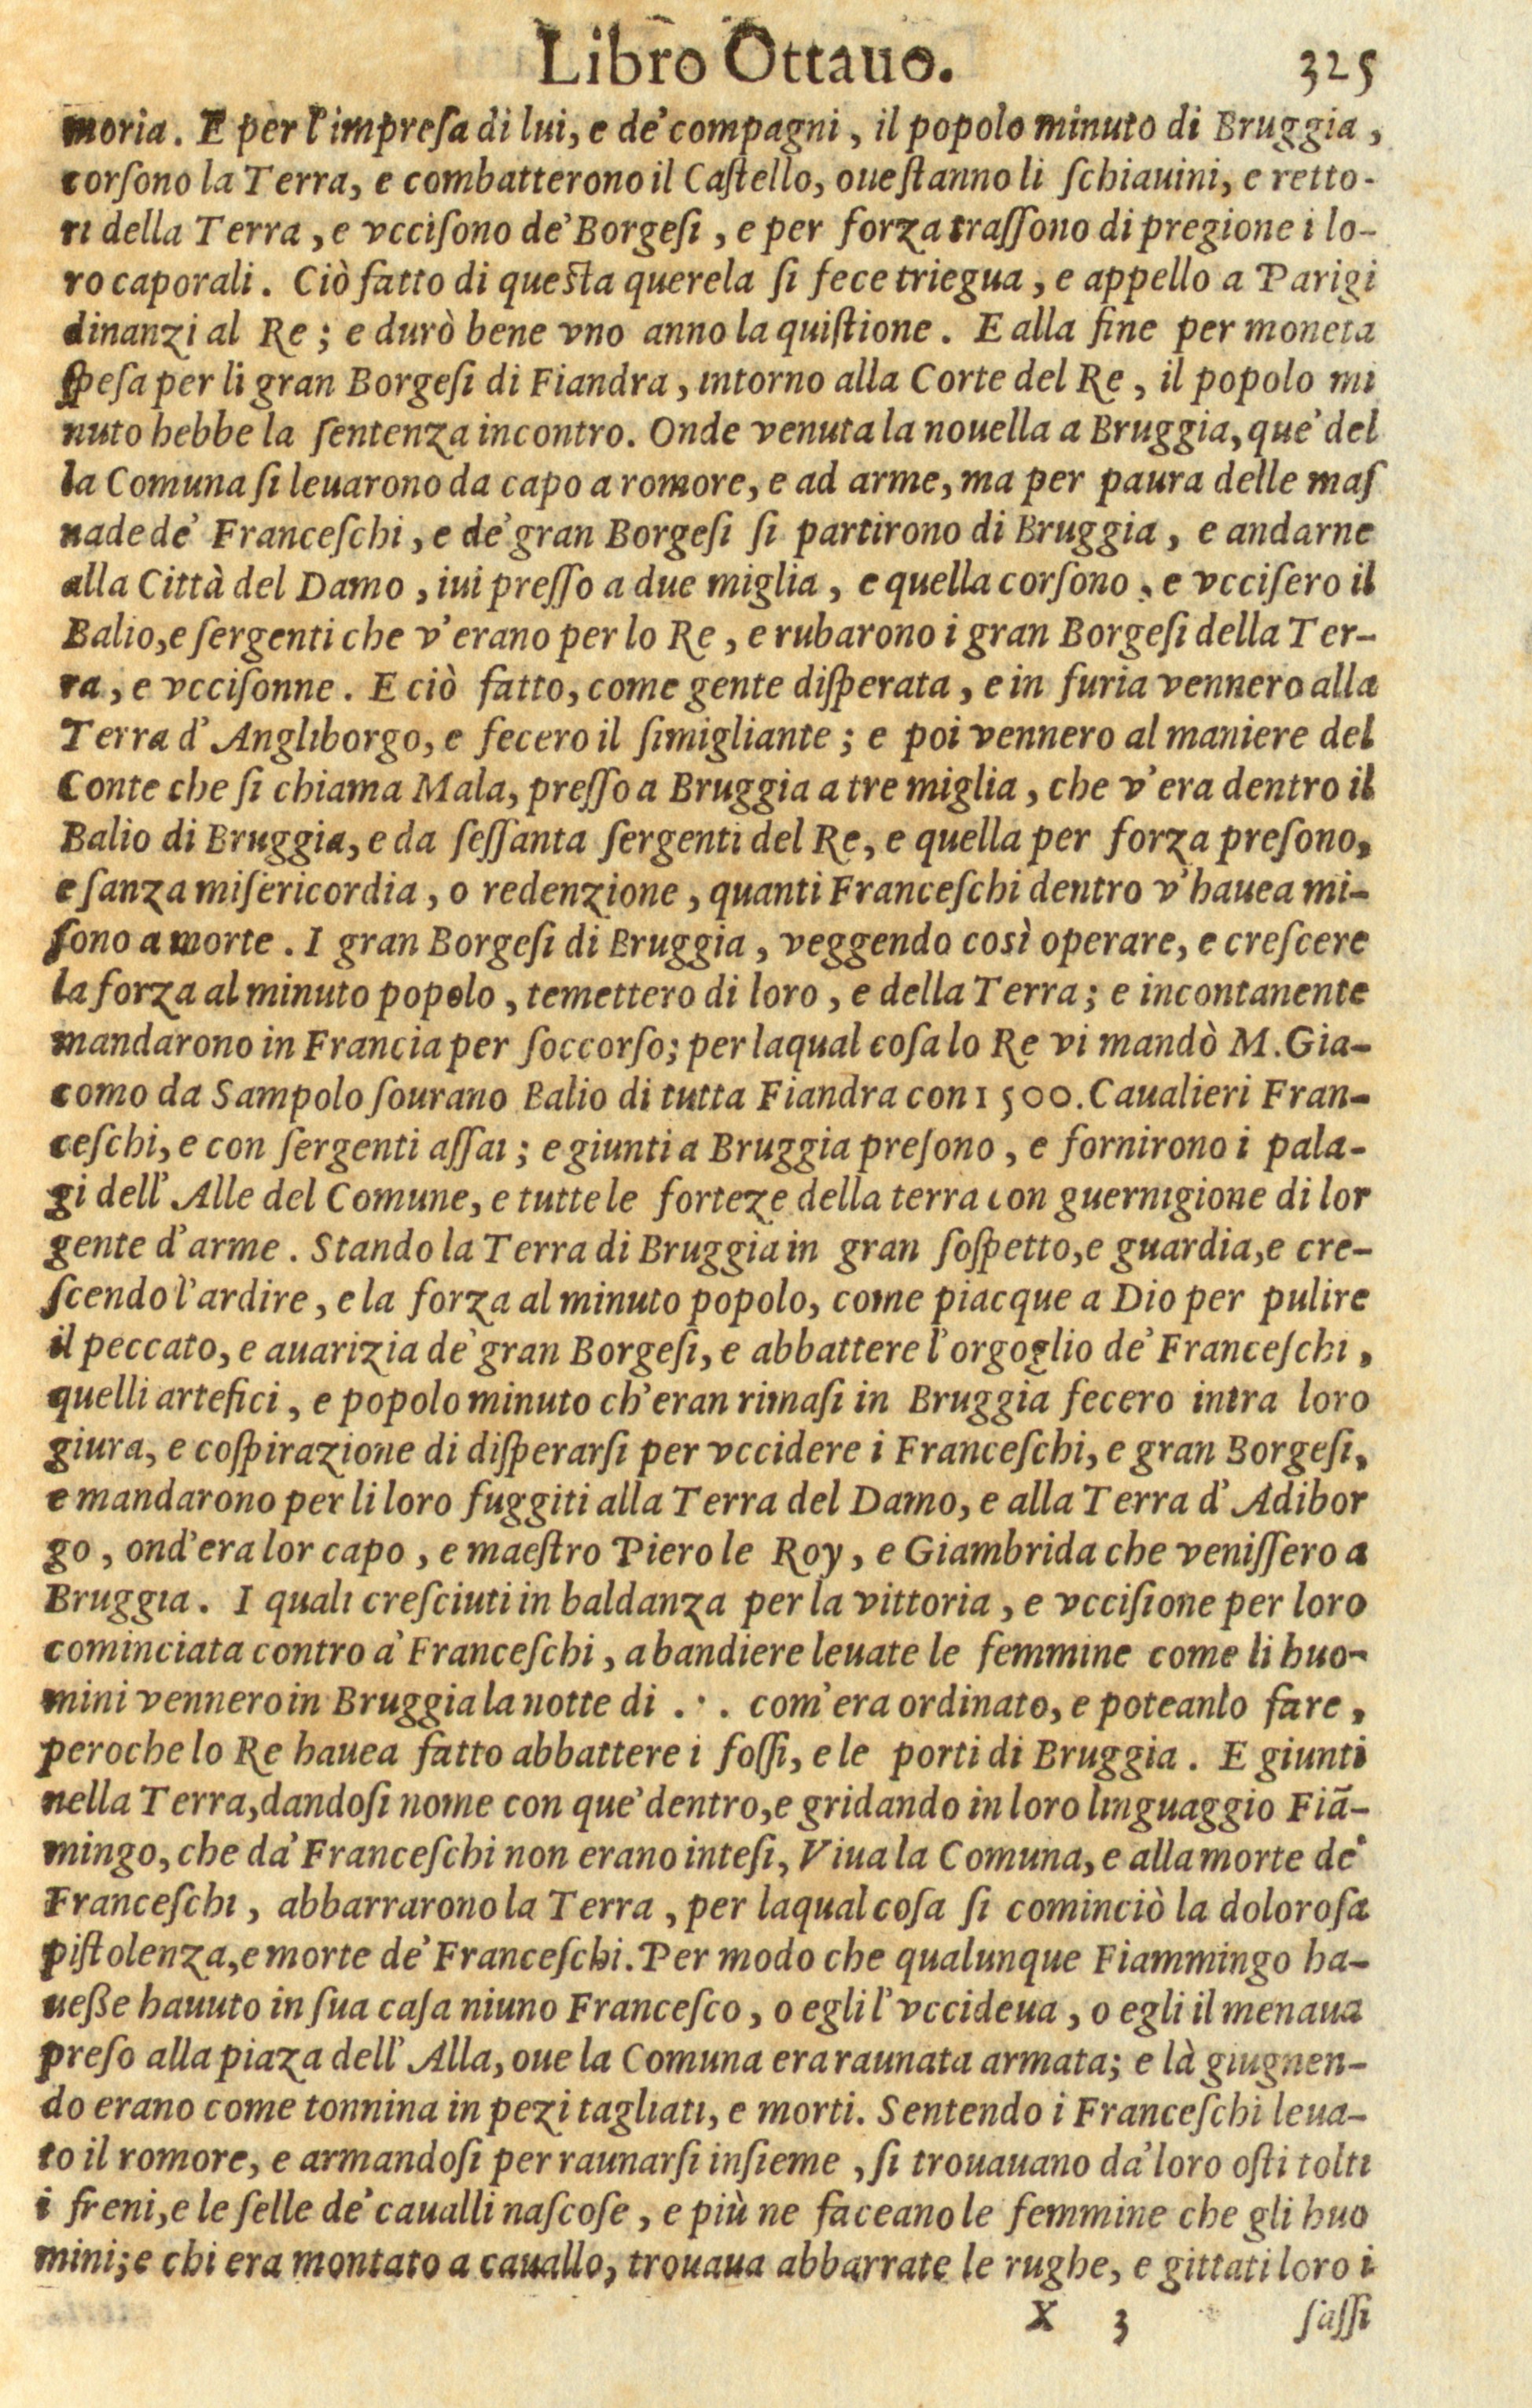 Libro Ottauo. 325
moria. E per l'impreſa di lui, e de' compagni, il popolo minuto di Bruggia,
corſono la Terra, e combatterono il Caſtello, oue ſtanno li ſchiauini, e retto-
ri della Terra, e vcciſono de' Borgeſi, e per forza traſſono di pregione i lo-
ro caporali. Ciò fatto di queſta querela ſi fece triegua, e appello a Parigi
dinanzi al Re; e durò bene vno anno la quiſtione. E alla fine per moneta
ſpeſa per li gran Borgeſi di Fiandra, intorno alla Corte del Re, il popolo mi
nuto hebbe la ſentenza incontro. Onde venuta la nouella a Bruggia, que' del
la Comuna ſi leuarono da capo a romore, e ad arme, ma per paura delle maſ
nade de' Franceſchi, e de' gran Borgeſi ſi partirono di Bruggia, e andarne
alla Città del Damo, iui preſſo a due miglia, e quella corſono, e vcciſero il
Balio, e ſergenti che v'erano per lo Re, e rubarono i gran Borgeſi della Ter-
ra, e vcciſonne. E ciò fatto, come gente diſperata, e in furia vennero alla
Terra d'Angliborgo, e fecero il ſimigliante; e poi vennero al maniere del
Conte che ſi chiama Mala, preſſo a Bruggia a tre miglia, che v'era dentro il
Balio di Bruggia, e da ſeſſanta ſergenti del Re, e quella per forza preſono,
e ſanza miſericordia, o redenzione, quanti Franceſchi dentro v'hauea mi-
ſono a morte. I gran Borgeſi di Bruggia, veggendo così operare, e creſcere
la forza al minuto popolo, temettero di loro, e della Terra; e incontanente
mandarono in Francia per ſoccorſo; per laqual coſa lo Re vi mandò M. Gia-
como da Sampolo ſourano Balio di tutta Fiandra con 1500. Caualieri Fran-
ceſchi, e con ſergenti aſſai; e giunti a Bruggia preſono, e fornirono i pala-
gi dell'Alle del Comune, e tutte le forteze della terra con guernigione di lor
gente d'arme. Stando la Terra di Bruggia in gran ſoſpetto, e guardia, e cre-
ſcendo l'ardire, e la forza al minuto popolo, come piacque a Dio per pulire
il peccato, e auarizia de' gran Borgeſi, e abbattere l'orgoglio de' Franceſchi,
quelli artefici, e popolo minuto ch'eran rimaſi in Bruggia fecero intra loro
giura, e coſpirazione di diſperarſi per vccidere i Franceſchi, e gran Borgeſi,
e mandarono per li loro fuggiti alla Terra del Damo, e alla Terra d'Adibor
go, ond'era lor capo, e maeſtro Piero le Roy, e Giambrida che veniſſero a
Bruggia. I quali creſciuti in baldanza per la vittoria, e vcciſione per loro
cominciata contro a' Franceſchi, a bandiere leuate le femmine come li huo-
mini vennero in Bruggia la notte di . · . com'era ordinato, e poteanlo fare,
peroche lo Re hauea fatto abbattere i foſſi, e le porti di Bruggia. E giunti
nella Terra, dandoſi nome con que' dentro, e gridando in loro linguaggio Fiã-
mingo, che da' Franceſchi non erano inteſi, Viua la Comuna, e alla morte de'
Franceſchi, abbarrarono la Terra, per laqual coſa ſi cominciò la doloroſa
piſtolenza, e morte de' Franceſchi. Per modo che qualunque Fiammingo ha-
ueße hauuto in ſua caſa niuno Franceſco, o egli l'vccideua, o egli il menaua
preſo alla piaza dell'Alla, oue la Comuna era raunata armata; e là giugnen-
do erano come tonnina in pezi tagliati, e morti. Sentendo i Franceſchi leua-
to il romore, e armandoſi per raunarſi inſieme, ſi trouauano da' loro oſti tolti
i freni, e le ſelle de' caualli naſcoſe, e più ne faceano le femmine che gli huo
mini; e chi era montato a cauallo, trouaua abbarrate le rughe, e gittati loro i
X 3 ſaſſi